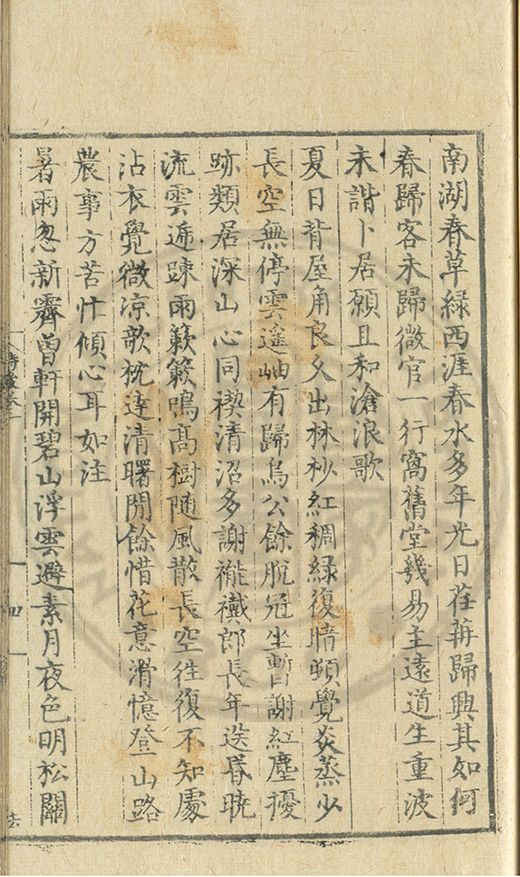 南湖春草綠西涯春水多年光日荏苒歸興其如何
春歸客未歸微官一行窩舊堂幾易主遠道生重波
未諧卜居願且和滄浪歌
夏日背屋角良久出林杪紅稠綠復晴頓覺炎蒸少
長空無停雲遥岫有歸鳥公餘脫冠坐暫謝紅塵擾
跡類居深山心同禊清沼多謝褦襶郎長年送昏曉
流雲逓踈雨簌簌鳴高樹随風散長空徃復不知處
沾衣覺微凉欹枕達清曙閒餘惜花意滑憶登山路
農事方苦忙傾心耳如注
暑雨忽新霽曾軒開碧山浮雲避素月夜色明松關
四